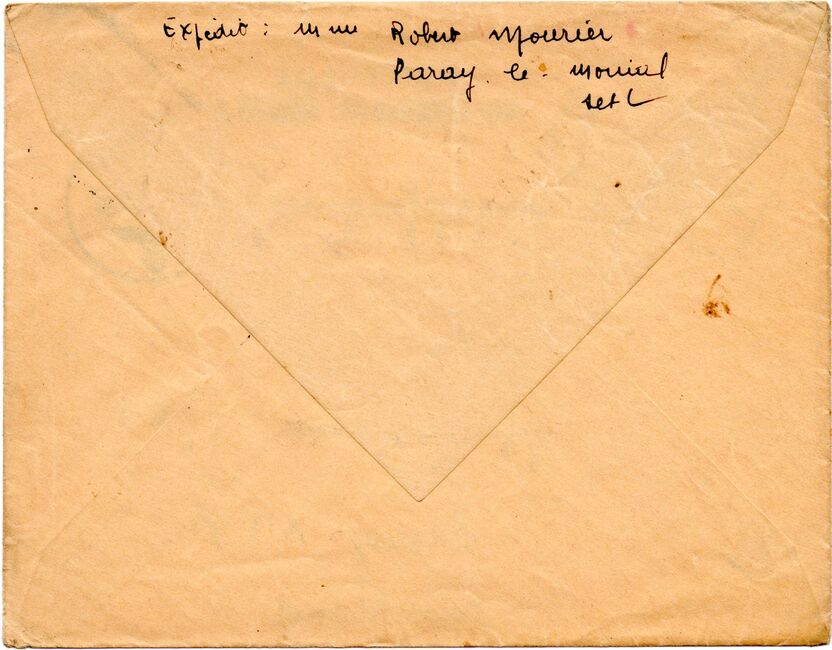 Expédit : Mme Robert Mourier
Paray-le-Monial
S et L